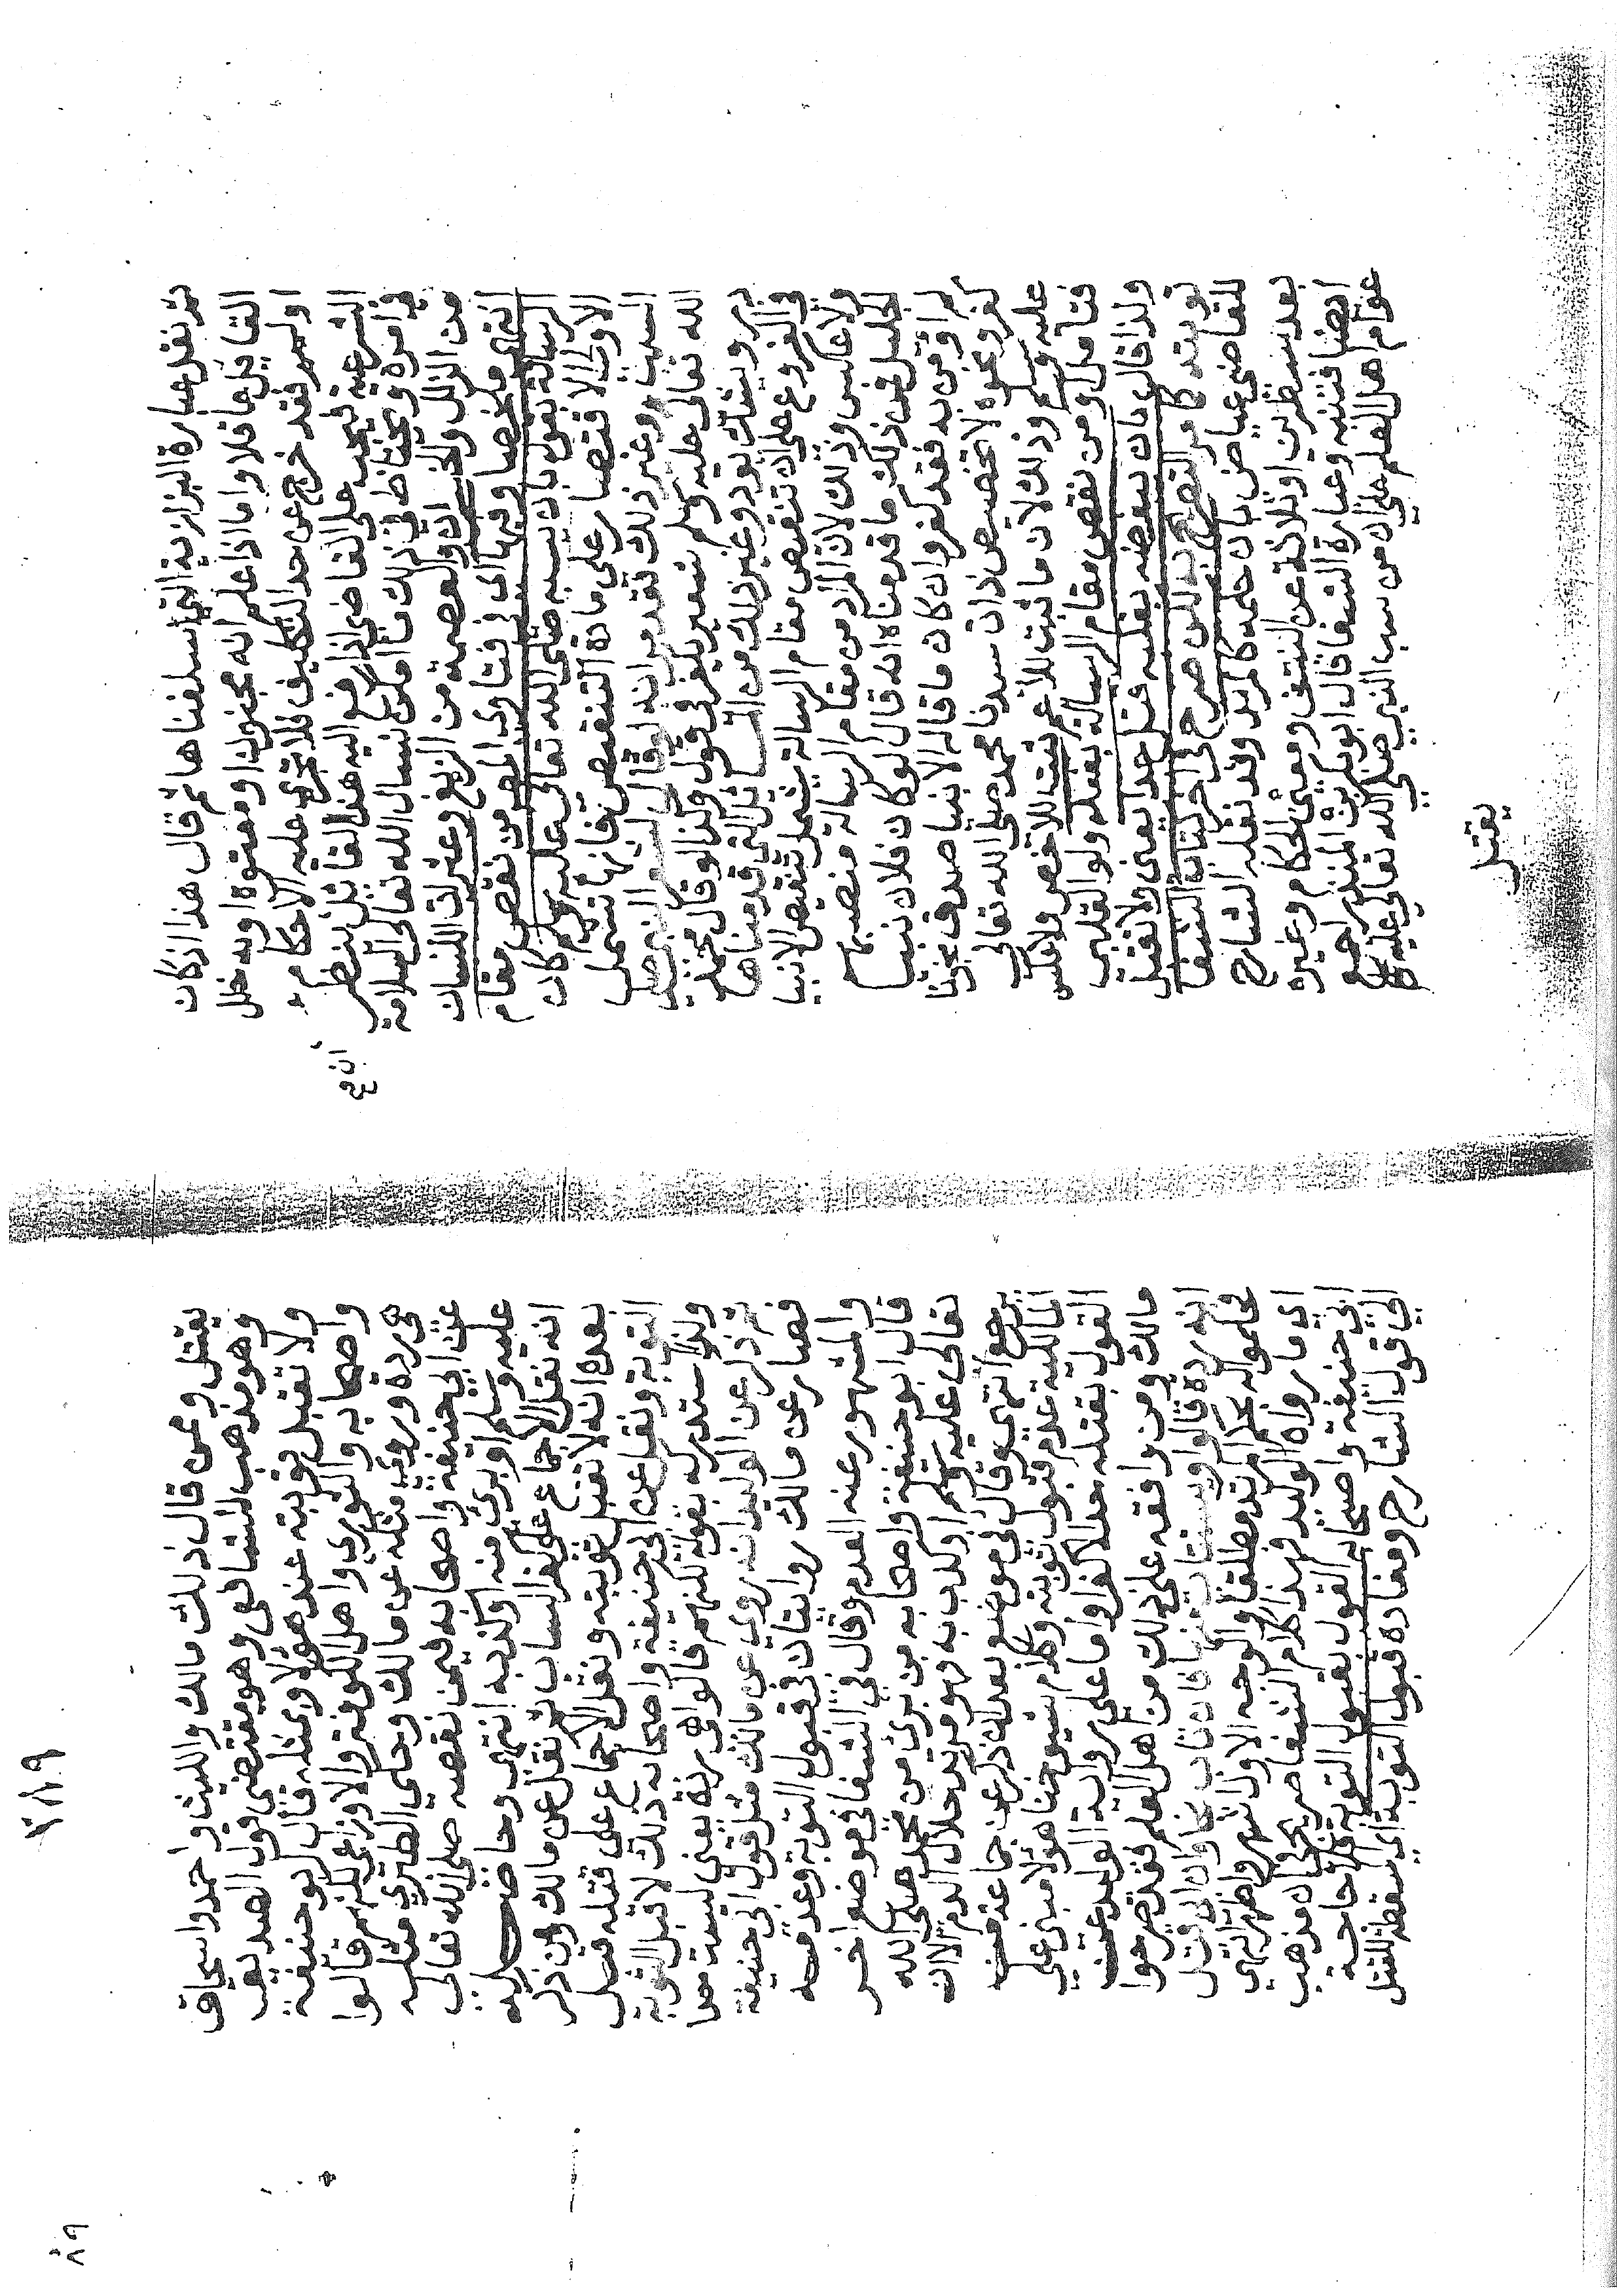 ثم نقل عبارة البزازية التي اسلفناها ثم قال هذا ان كان
القايل عاقلا واما اذا علم انه مجنون او معتوه او به خلل
او لمم فقد خرج عن حد التكليف فلا تجري عليه الاحكام
الشرعية فيجب على القاضي اذا رفع اليه هذا القائل ينظر
ان صح
في امره ويحتاط في ذلك ما امكن نسال الله تعالى السلامة
من الزلل والخسران والعصمة من الزيغ وعثرات اللسان
انتهى ملخصا وفيها اي في فتاوى المص من نقص مقام
الرسالة بقوله بان سبه صلى الله تعالى عليه وسلم كان
الاولى الاقتصار على مادة التنقيص فانها تشمل
السب وغير ذلك تقدم انه لو قال لشعر النبي صلى
الله تعالى عليه وسلم شعير يكفر في قول وكذا لو قال محمد
درويشك بود وغير ذلك من المسائل التي قدمناها
في الفروع على ان تنقيص مقام الرسالة يشمل تنقيص الانبيا
ولا عكس وذلك لان المراد من مقام الرسالة منصبهم
الجليل فمن ذلك ما قدمناه انه قال لو كان فلان نبيا
لم اومن به فقد كفر وان كان ما قاله الانبيا صدق نجونا
كفر ونحوه لا تخصيص ذات سيدنا محمد صلى الله تعالى
عليه وسلم وذلك لان ما ثبت للاعم ثبت للاخص ولا عكس
فتامل او من نقص مقام الرسالة بفعله ولو القلبي
ولذا قال بان يبغضه بقلبه قتل حدا يعني ولا تقبل
توبته كما مر التصريح به لكن صرح في اخر كتابة الشفا
للقاضي عياض بان حكمه كالمرتد وقد نقله الشارح
بعد سطرين او ثلاثة عن النتف ومعين الحكام وغيره
ايضا فتنبه وعبارة الشفا قال ابو بكر بن المنذر اجمع
عوام اهل العلم على ان من سب النبي صلى الله تعالى عليه وسلم
يقتل
٢٨٩
يقتل وممن قال ذلك مالك والليث واحمد واسحاق
وهو مذهب الشافعي وهو مقتضى قول الصديق
ولا تقبل توبته عند هؤلا وبمثله قال ابو حنيفة
واصحابه والثوري واهل الكوفة والاوزاعي لكنهم قالوا
هي ردة وروي مثله عن مالك وحكى الطبري مثله
عن ابي حنيفة واصحابه فيمن نقصه صلى الله تعالى
عليه وسلم او برئ منه او كذبه انتهى وحاصله
انه نقل الاجماع على كفر الساب ثم نقل عن مالك ومن ذكر
بعده انه لا تقبل توبته ونقل الاجماع على قتله قبل
التوبة ونقل عن ابي حنيفة واصحابه ذلك لا قبل التوبة
ولذا استدركه بقوله لكنهم قالوا هي ردة يعني ليست حدا
ثم ذكر عن الوليد انه روي عن مالك مثل قول ابي حنيفة
فصار عن مالك روايتان في قبول التوبة وعدمه
والمشهور عنه العدم وقال في الشفا في موضع اخر
قال ابو حنيفة واصحابه من برئ من محمد صلى الله
تعالى عليه وسلم او كذب به فهو مرتد حلال الدم الا ان
يرجع انتهى وقال في موضع بعد ان ذكر عن جماعة من
المالكية عدم قبول توبته وكلام شيوخنا هؤلا مبني على
القول بقتله حدا لا كفرا واما على رواية الوليد عن
مالك ومن وافقه على ذلك من اهل العلم فقد صرحوا
انه ردة قالوا ويستتاب منها فان تاب نكل وان ابى قتل
فحكموا له بحكم المرتد مطلقا والوجه الاول اشهر واظهر انتهى
اي ما رواه الوليد فهذا كلام الشفا صريح في ان مذهب
ابي حنيفة واصحابه القول بقبول التوبة فلا حاجة
الى قول الشارح ومفاده قبول التوبة اي يسقط القتل
٨٩